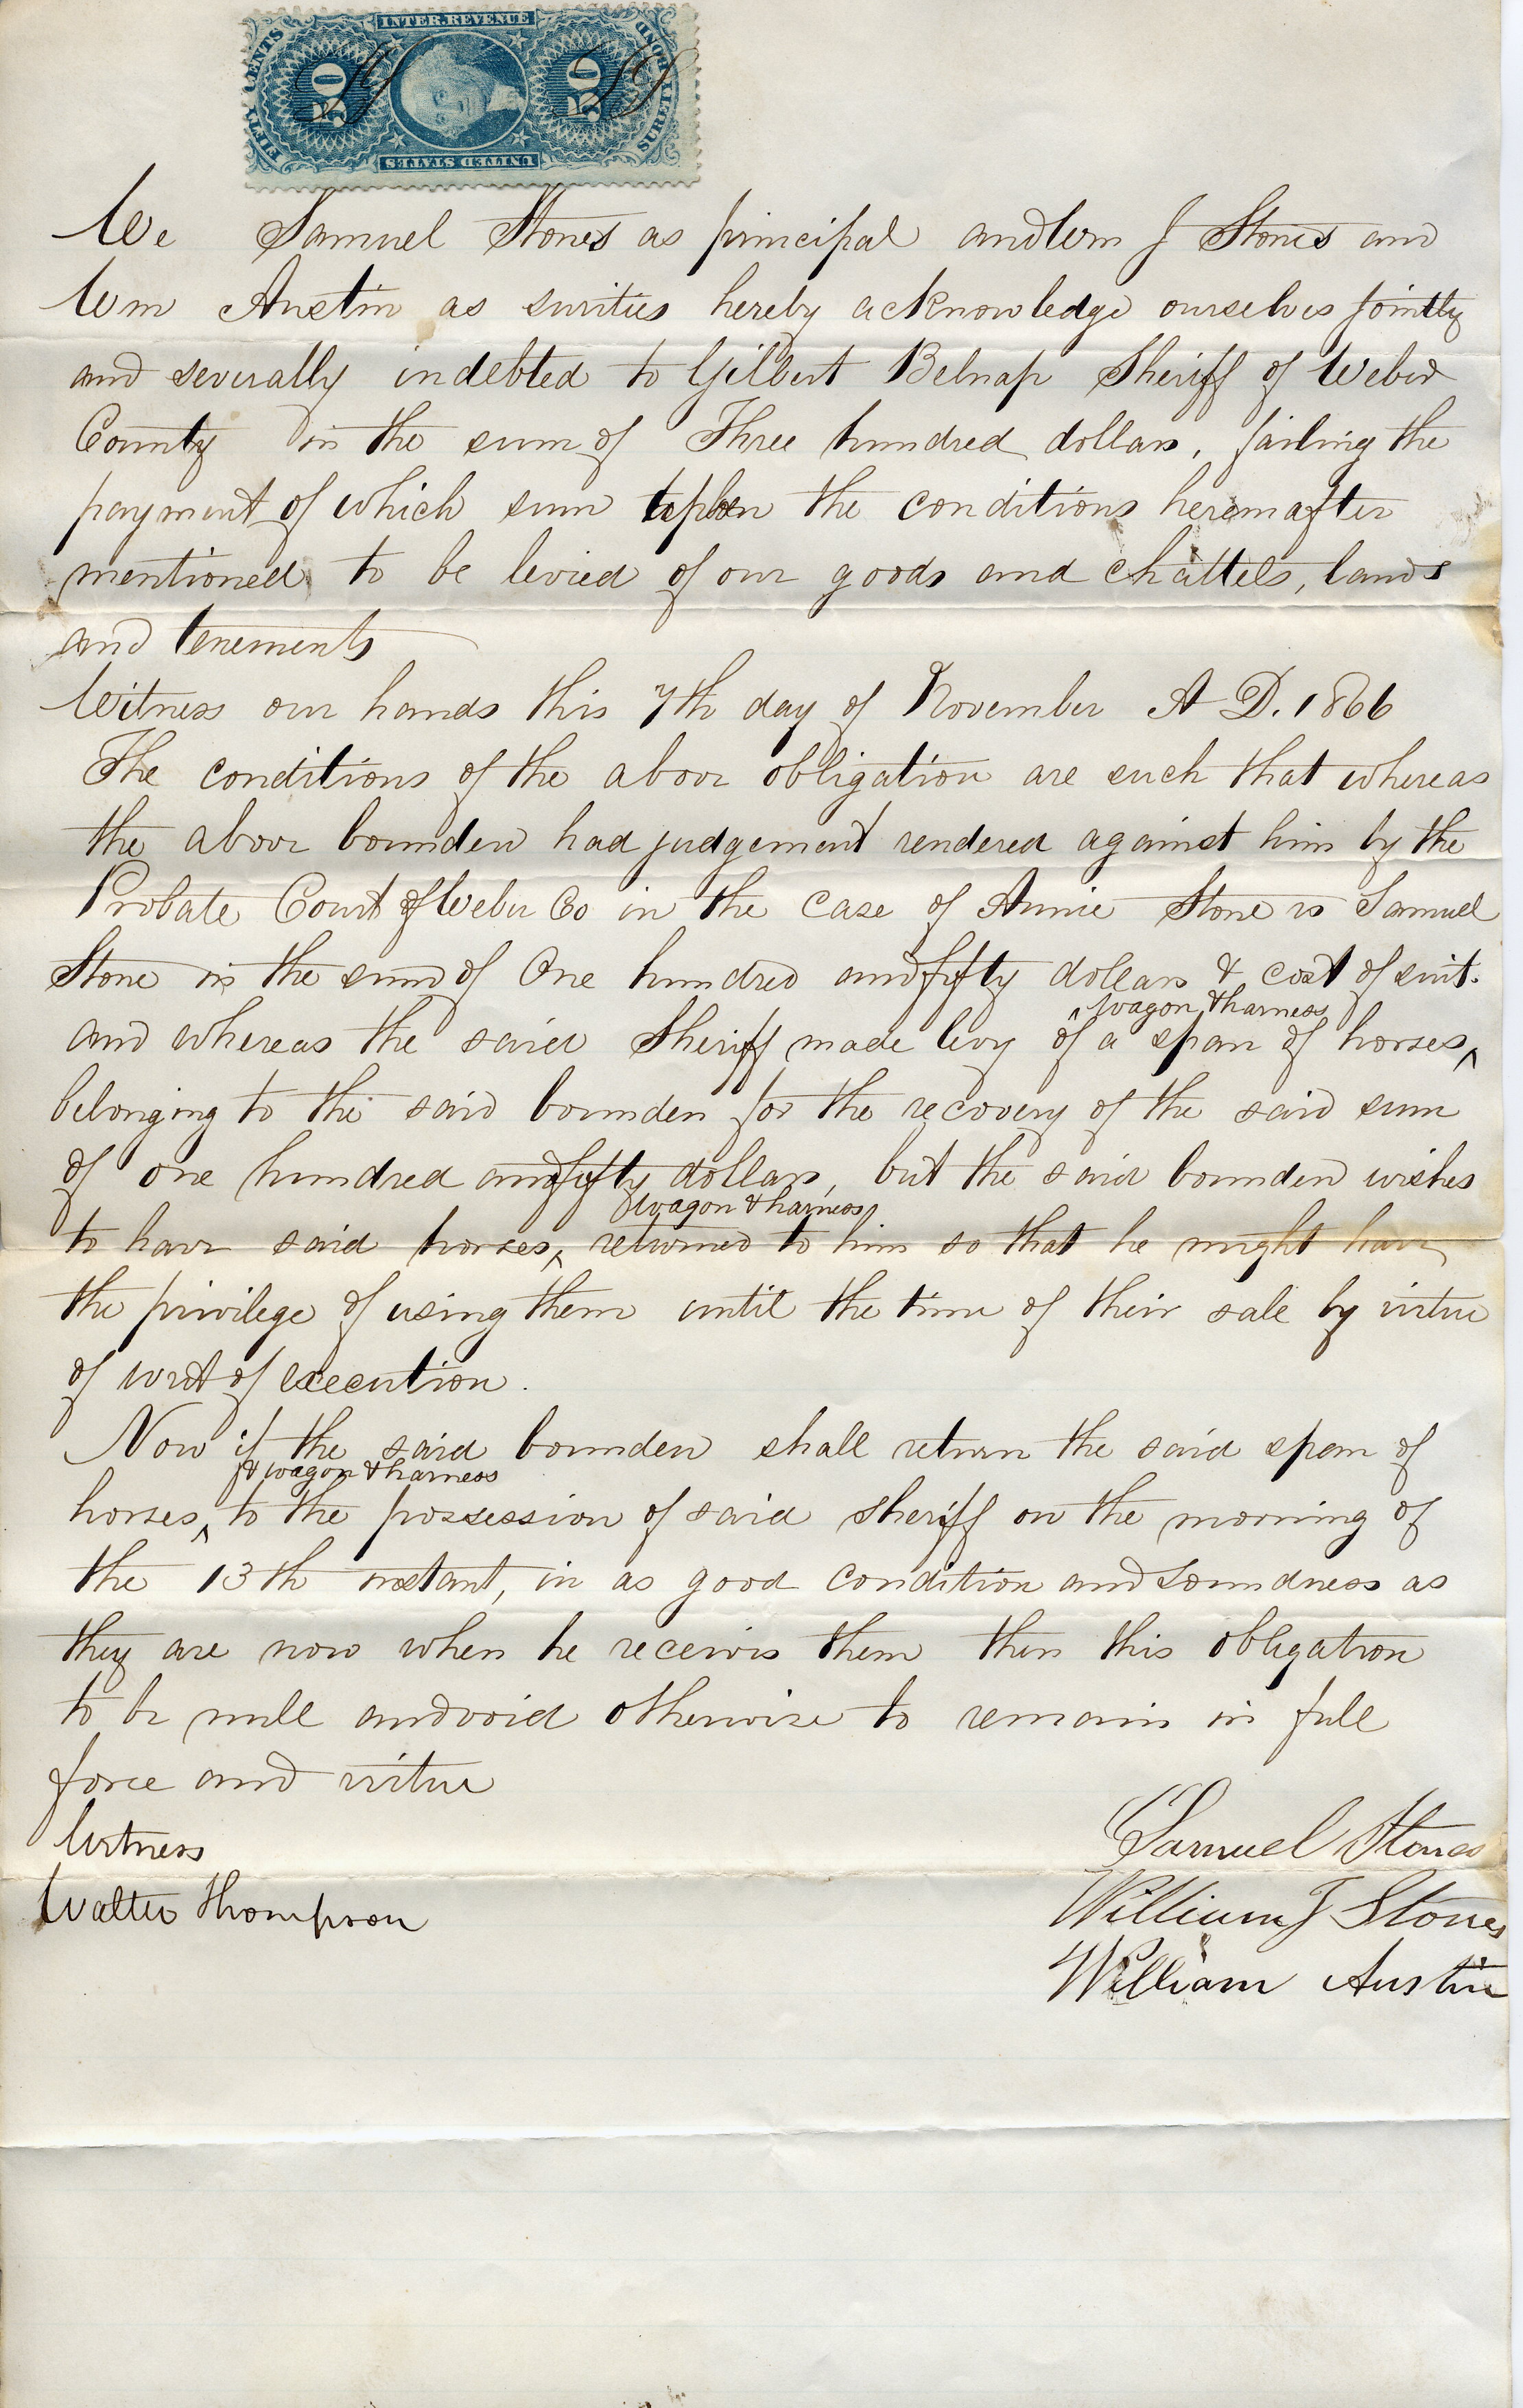 INTER. REVENUE
FIFTY CENTS
50
50
SURETY BOND
UNITED STATES
We Samuel Stones as principal and Wm J Stones and
Wm Austin as surities hereby acknowledge ourselves jointly
and severally indebted to Gilbert Belnap Sheriff of Weber
County in the sum of Three hundred dollars, failing the
payment of which sum upon the conditions hereinafter
mentioned to be levied of our goods and chattels, lands
and tenements
Witness our hands this 7th day of November A D. 1866
The conditions of the above obligation are such that whereas
the above bounden had judgement rendered against him by the
Probate Court of Weber Co in the case of Annie Stone vs Samuel
Stone in the sum of One hundred and fifty dollars & cost of suit.
wagon & harness
and whereas the said Sheriff made levy of a span of horses ^
belonging to the said bounden for the recovery of the said sum
of one hundred and fifty dollars, but the said bounden wishes
wagon & harness
to have said horses, ^ returned to him so that he might have
the privilege of using them until the time of their sale by virtue
of writ of execution.
Now if the said bounden shall return the said span of
& wagon & harness
horses, ^ to the possession of said sheriff on the morning of
the 13th instant, in as good condition and soundness as
they are now when he receives them then this obligation
to be null and void otherwise to remain in full
force and virtue
Witness
Samuel Stones
Walter Thompson
William J Stones
William Austin